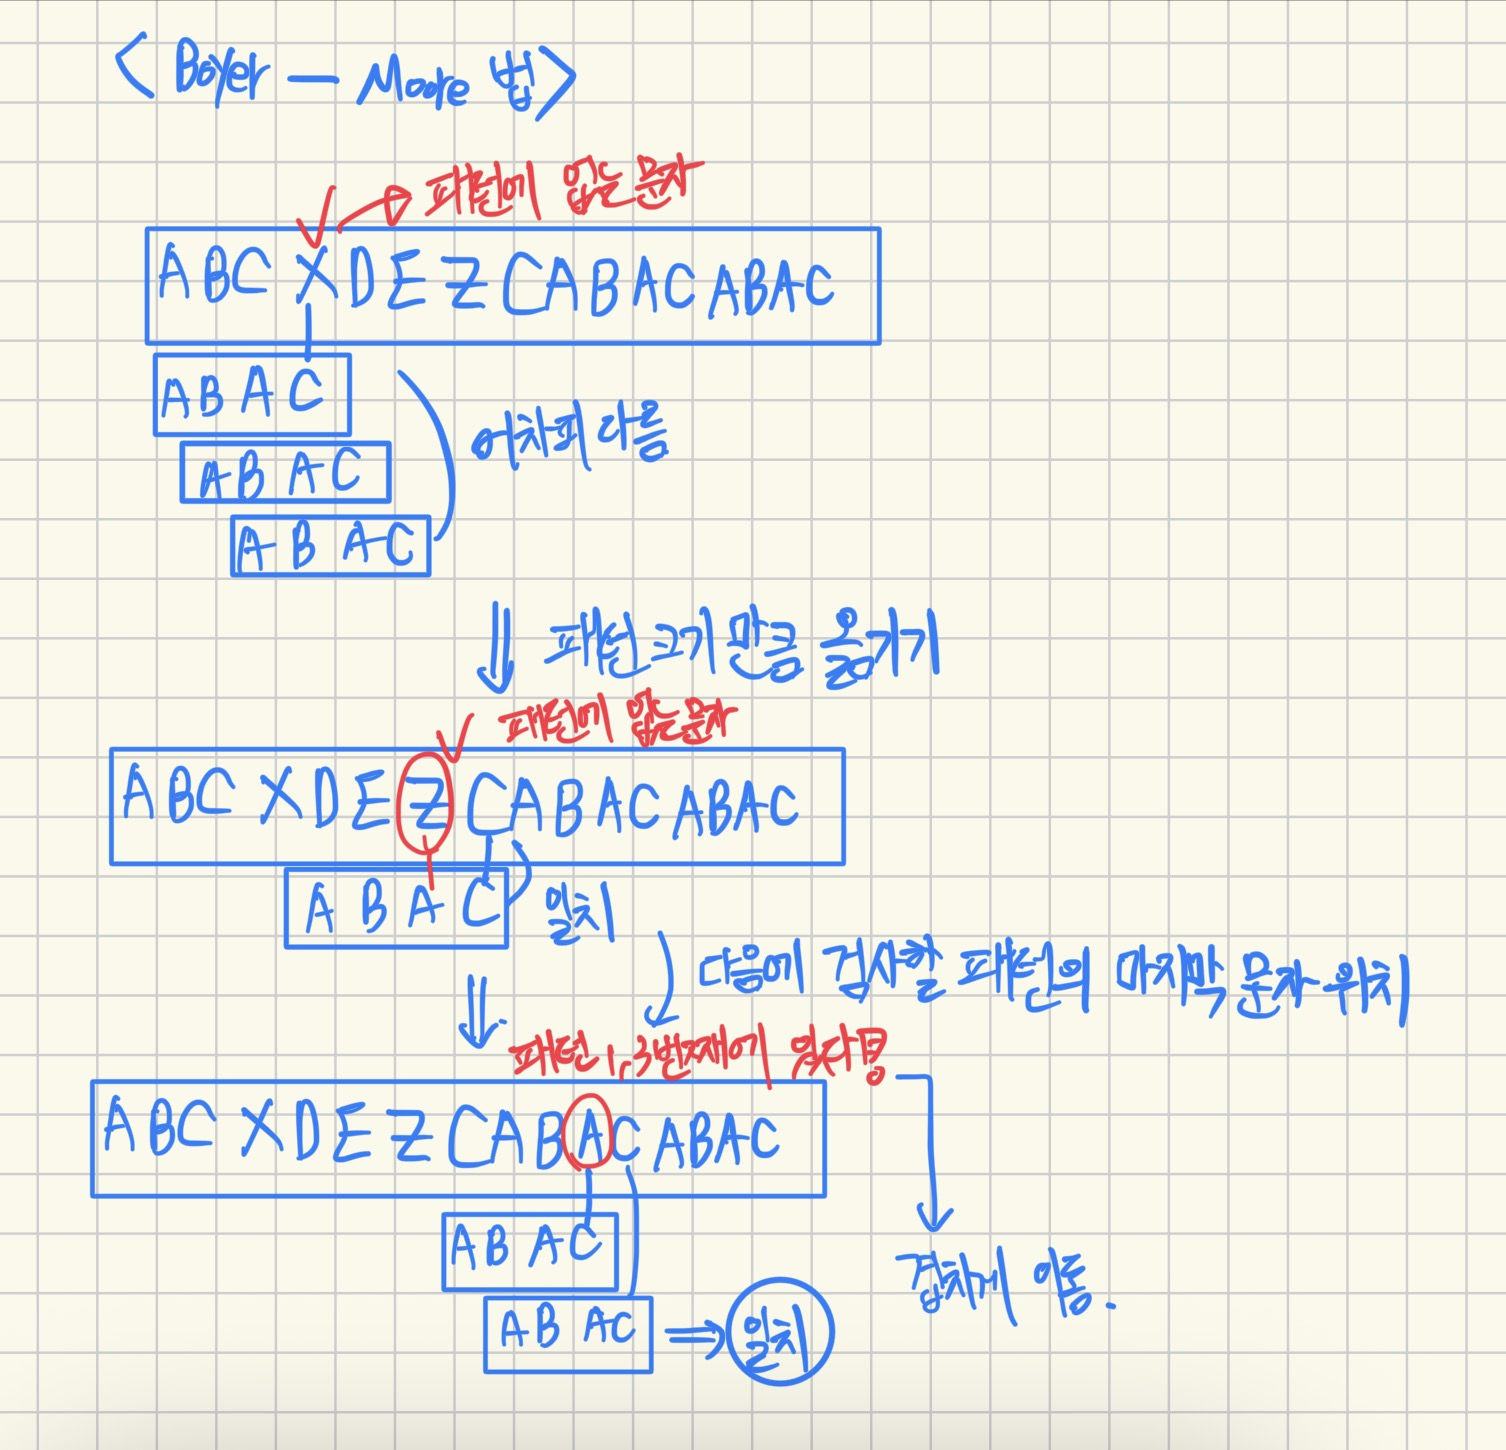 <Boyer — Moore 법>
패턴에 없는 문자
ABC XDEZCABACABAC
ABAC
ABAC
어차피 다름
ABAC
패턴크기만큼 옮기기
패턴에 없는문자
ABC XDEZCABACABAC
ABAC 일치
다음에 검사할 패턴의 마지막 문자 위치
패턴 1,3번째에 있다면
ABC XDEZCABACABAC
ABAC
겹치게 이동.
ABAC ⇒ 일치